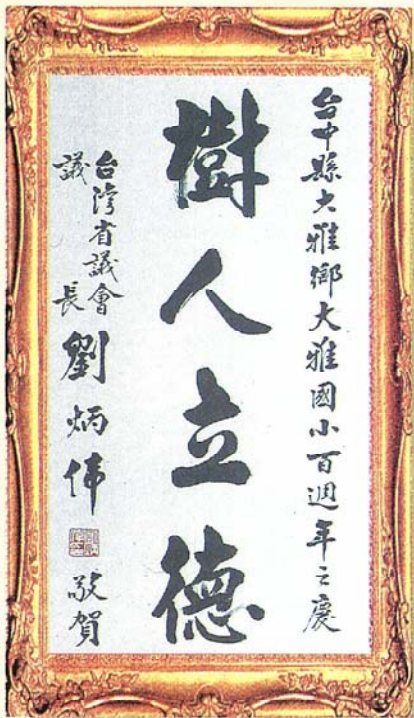 台中縣大雅鄉大雅國小百週年之慶
樹人立德
台灣省議會
議長 劉炳偉 敬賀